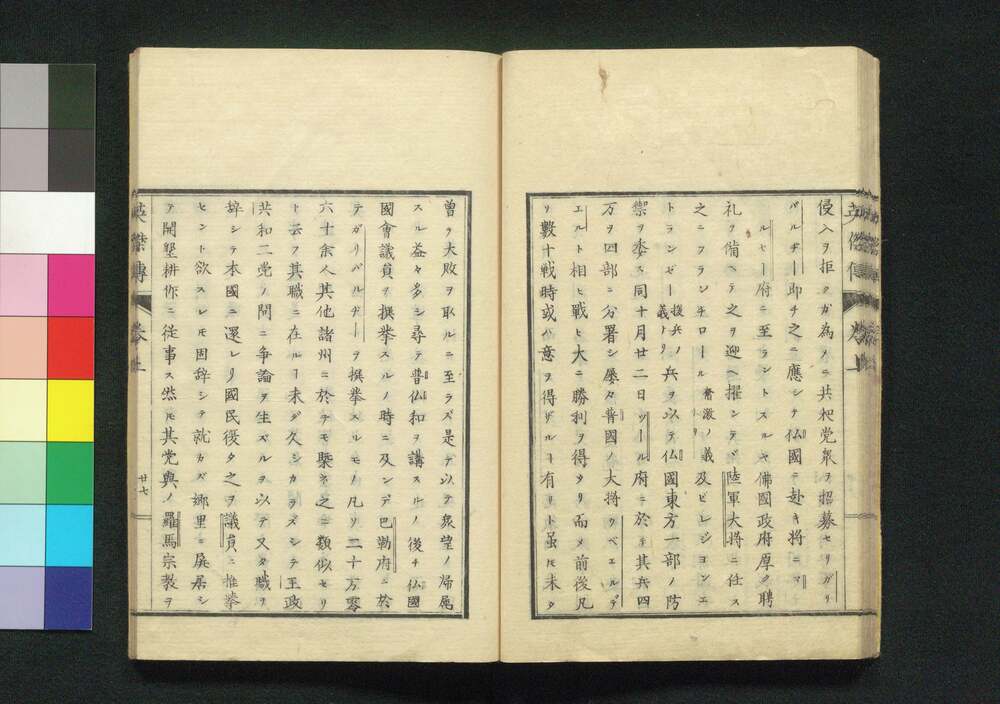 侵入ヲ拒クガ為メニ共和党衆ヲ招募セリガリ
バルヂー即チ之ニ應シテ仏國ニ赴キ将ニマ
ルセー府ニ至ラントスルヤ佛國政府厚ク聘
礼ヲ備ヘテ之ヲ迎ヘ擢ンデヽ陸軍大将ニ任ス
之ニフランチロール奮激ノ義ナリ及ビレジヨンエ
トランゼー援兵ノ義ナリノ兵ヲ以テ仏國東方一部ノ防
禦ヲ委ス同十月廿二日ツール府ニ於テ其兵四
万ヲ四部ニ分署シ屡々普國ノ大将ウベエルデ
エルト相ヒ戦ヒ大ニ勝利ヲ得タリ而メ前後凡
ソ數十戦時或ハ意ヲ得ザルヿ有リト虽モ未タ
英傑傳 巻上
曽テ大敗ヲ取ルニ至ラズ是ヲ以テ衆望ノ帰属
スル益々多シ尋テ普仏和ヲ講スルノ後チ仏國
國會議員ヲ撰挙スルノ時ニ及ンデ巴勒府ニ於
テガリバルヂーヲ撰挙スルモノ凡ソ二十万零
六十余人其他諸州ニ於テモ槩子之ニ類似セリ
ト云フ其職ニ在ルヿ未ダ久シカラズシテ王政
共和二党ノ間ニ争論ヲ生ズルヲ以テ又タ職ヲ
辞シテ本國ニ還レリ國民復タ之ヲ議員ニ推挙
セント欲スレモ因辞シテ就カバ郷里ニ屏居シ
テ開墾耕作ニ従事ス然モ其党與ノ羅馬宗教ヲ
英傑傳 巻上 廿七